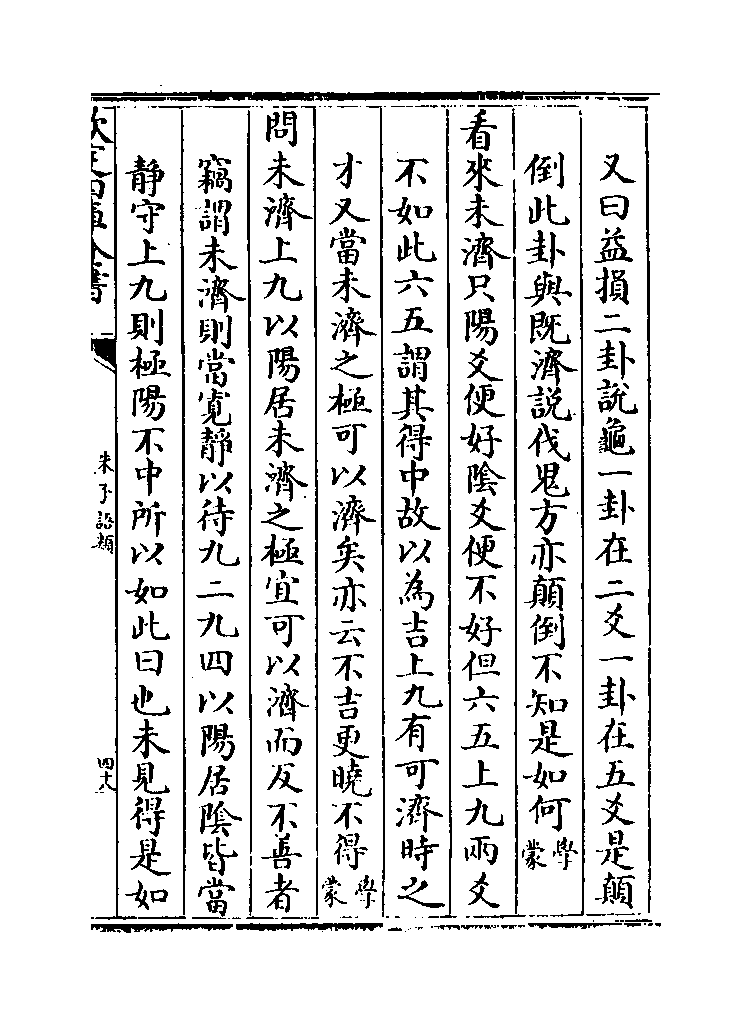 又曰益損二卦說龜一卦在二爻一卦在五爻是顛
倒此卦與既濟說伐鬼方亦顛倒不知是如何學蒙
看來未濟只陽爻便好陰爻便不好但六五上九兩爻
不如此六五謂其得中故以為吉上九有可濟時之
才又當未濟之極可以濟矣亦云不吉更曉不得學蒙
問未濟上九以陽居未濟之極宜可以濟而反不善者
竊謂未濟則當寛靜以待九二九四以陽居陰皆當
靜守上九則極陽不中所以如此曰也未見得是如
欽定四庫全書
朱子語類
四十八